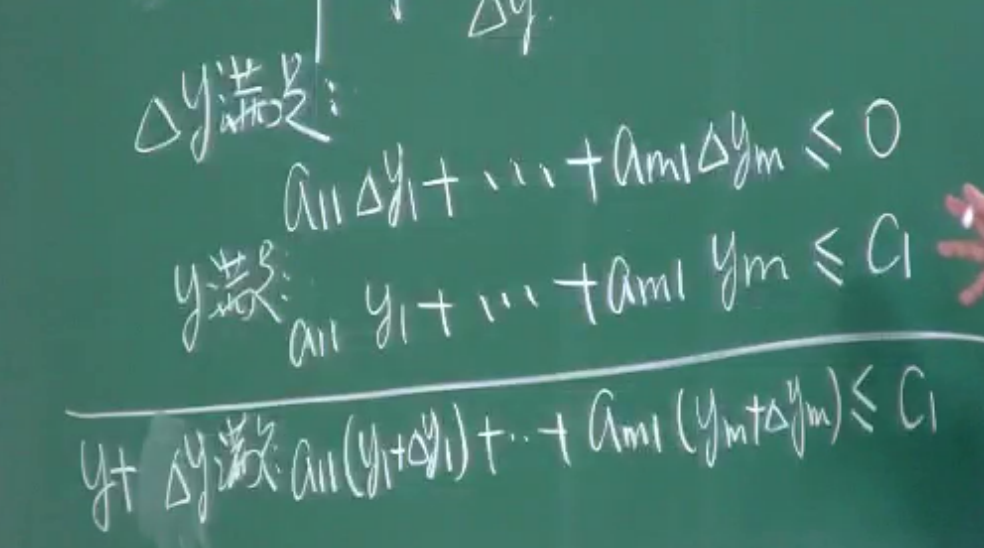 Δy.
Δy满足:
a11Δy1+···+am1Δym≤0
y满足: a11 y1+···+am1 ym≤C1
y+Δy满足: a11(y1+Δy1)+··+am1(ym+Δym)≤C1